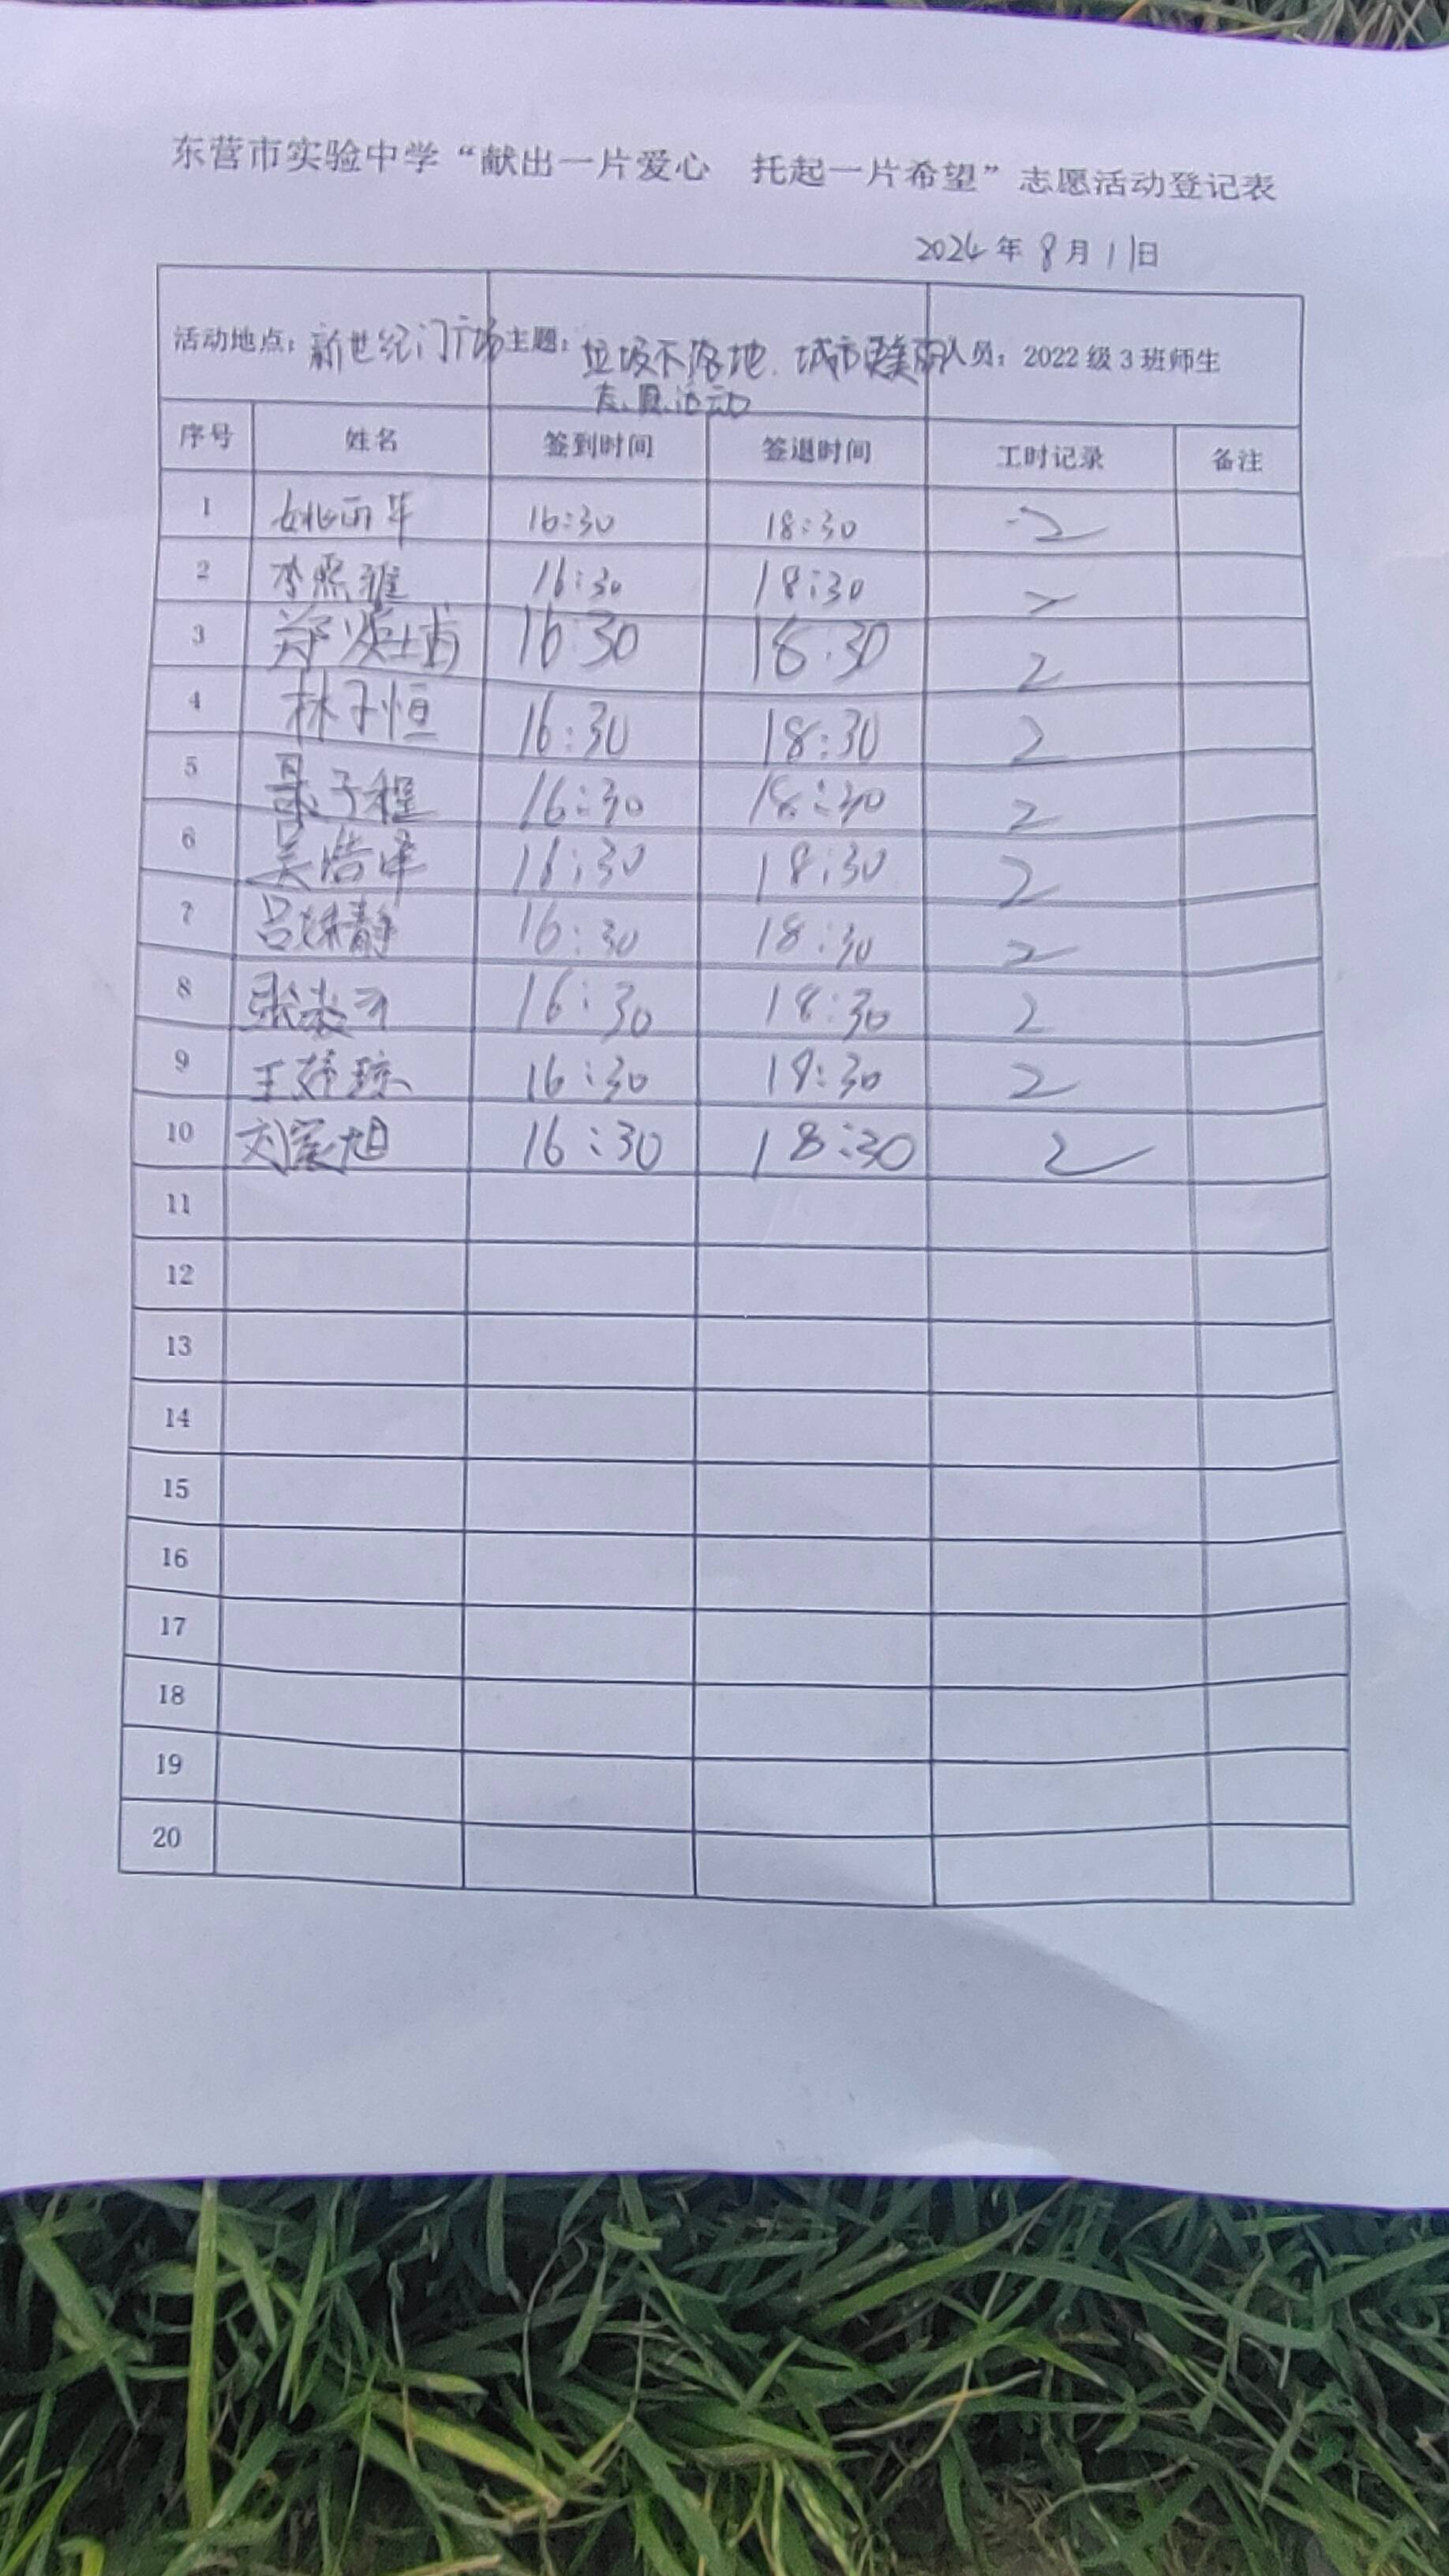 东营市实验中学“献出一片爱心 托起一片希望”志愿活动登记表
2024年8月11日
活动地点：新世纪门广场 主题：垃圾不落地．城市更美丽 人员：2022级3班师生
志愿活动
序号 姓名 签到时间 签退时间 工时记录 备注
1 姚雨 16:30 18:30 2
2 李熙雅 16:30 18:30 2
3 郑 16:30 18:30 2
4 林子恒 16:30 18:30 2
5 子程 16:30 18:30 2
6 吴浩泽 16:30 18:30 2
7 吕姝静 16:30 18:30 2
8 张 16:30 18:30 2
9 王婷琼 16:30 18:30 2
10 刘宸旭 16:30 18:30 2
11
12
13
14
15
16
17
18
19
20